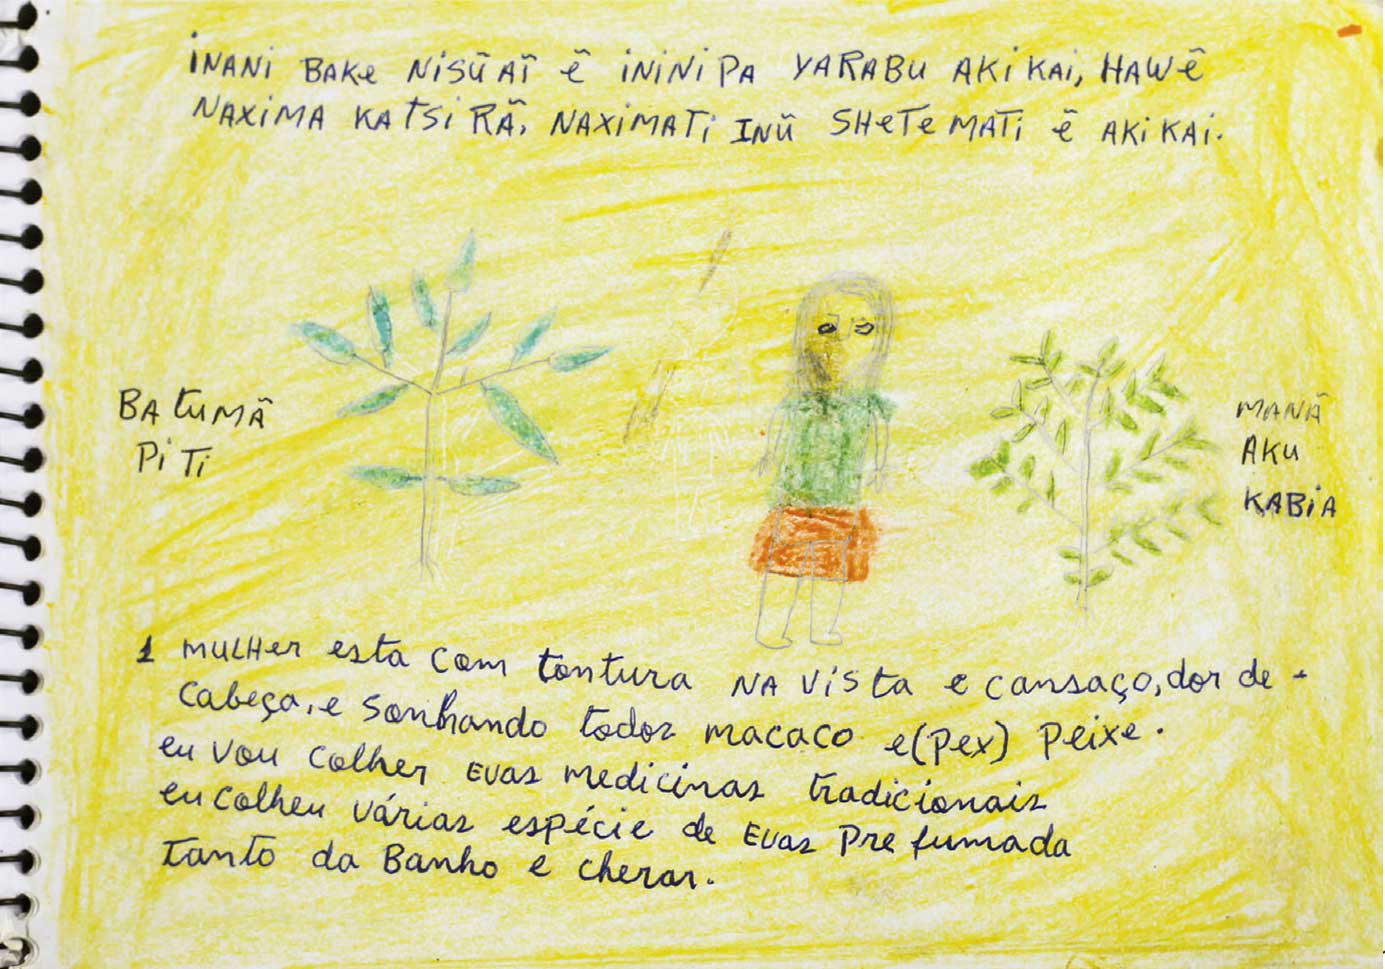 INANI BAKE NISŨAĨ Ẽ ININIPA YARABU AKIKAI, HAWẼ
NAXIMA KATSIRÃ, NAXIMATI INŨ SHETEMATI Ẽ AKIKAI.
BATUMÃ
PITI
MANÃ
AKU
KABIA
1 MULHER esta com tontura NA vista e cansaço, dor de -
cabeça, e sonhando todos macaco e (pex) peixe.
eu vou colher EVas medicinas tradicionais
eu colheu várias espécie de EVas prefumada
tanto da Banho e cherar.